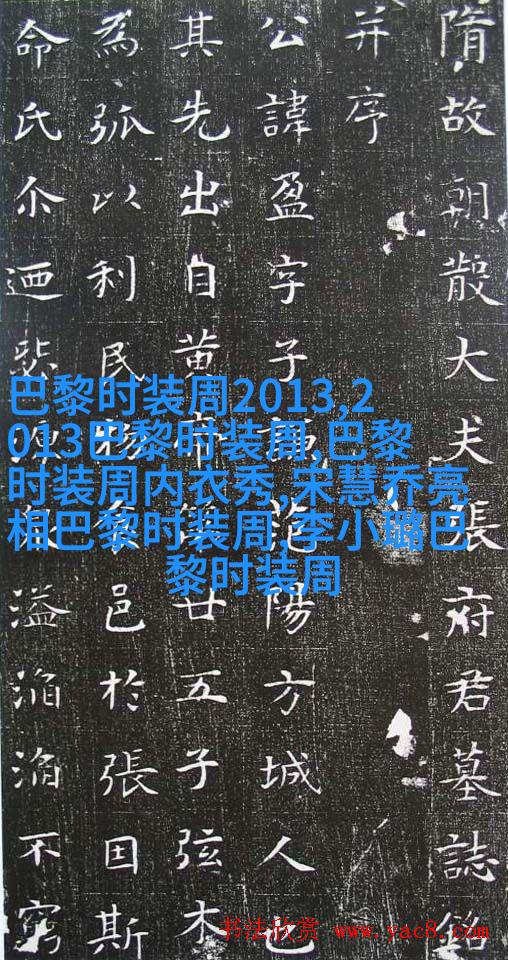 隋故朝散大夫張府君墓誌銘
并序
公諱盈字子范陽方城人也
其先出自黄帝第廿五子弦木
為弧以利民邑於張因斯
命氏尒迺源溢滔滔不窮
巴黎时装周2013,2
013巴黎时装周,巴黎
时装周内衣秀,宋慧乔亮
相巴黎时装周,李小璐巴
黎时装周
书法欣赏 www.yac8.com